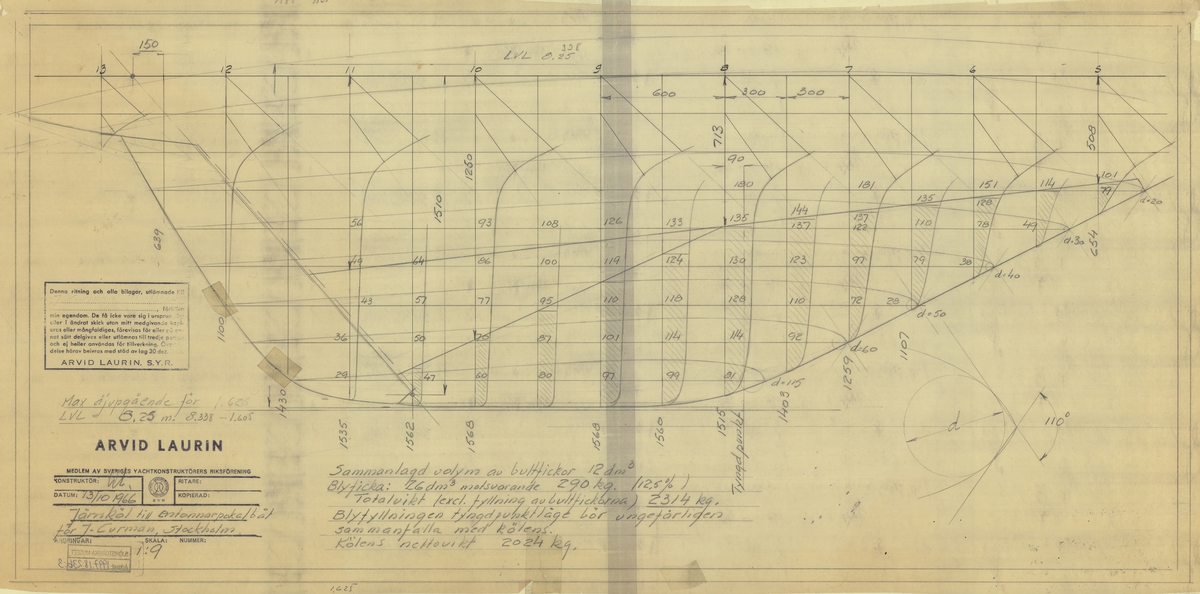 150
LVL 8.25
338
13 12 11 10 9 8 7 6 5
600 300 300
713
508
1250
1510
90
180 181 151 114 101
79
135 144 137 135 128
137 122
56 93 108 126 133 110 78 49
d=20
d=30
654
639
49 64 86 100 119 124 130 123 97 79 38
d=40
43 57 77 95 110 118 128 110 72 28
d=50
1100
36 50 70 87 101 114 114 92
d=60
1107
29 47 60 80 97 99 81
d=115
1259
1403
1430
1535
1562
1568
1568
1560
1515
Tyngdpunkt
d
110°
Denna ritning och alla bilagor, utlämnade till
min egendom. De få icke vare sig i
eller i ändrat skick utan mitt medgivande
eras eller mångfaldigas, förevisas för eller på
nat sätt delgivas eller utlämnas till tredje
och ej heller användas för tillverkning.
delse härav beivras med stöd av lag 30 dec.
ARVID LAURIN, S.Y.R.
Max djupgående för 1.625
LVL d 8,25 m. 8.338 - 1.605
ARVID LAURIN
MEDLEM AV SVERIGES YACHTKONSTRUKTÖRERS RIKSFÖRENING
KONSTRUKTÖR:
RITARE:
DATUM: 13/10 1966
KOPIERAD:
Järnköl till Entonnarpokalbåt
för J. Curman, Stockholm
ÄNDRINGAR: SKALA: NUMMER:
1:9
Sammanlagd volym av bultfickor 12 dm³
Blyficka: 26 dm³ motsvarande 290 kg. (12.5%)
Totalvikt (excl. fyllning av bultfickorna) 2314 kg.
Blyfyllningen tyngdpunktläge bör ungefärligen
sammanfalla med kölens.
Kölens nettovikt 2024 kg.
1,625